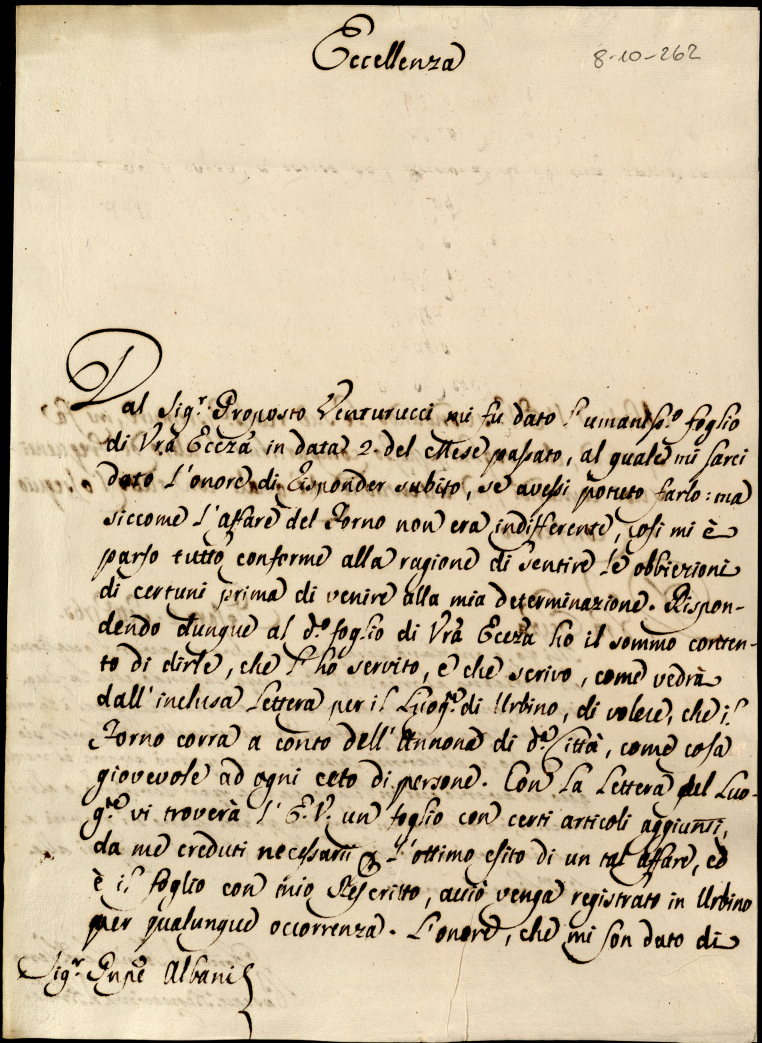 Eccellenza
8-10-262
Dal Sig.r Proposto Venturucci mi fu dato l'umaniss.o foglio
di Vrã Eccza in data 2. del Mese passato, al quale mi sarei
dato l'onore di Risponder subito, se avessi potuto farlo: ma
siccome l'affare del Forno non era indifferente, così mi è
parso tutto conforme alla ragione di sentire le obbiezioni
di certuni prima di venire alla mia determinazione. Rispon-
dendo dunque al d.o foglio di Vrã Eccza ho il sommo conten-
to di dirle, che l'ho servito, e che scrivo, come vedrà
dall'inclusa Lettera per il Luog.te di Urbino, di volere, che il
Forno corra a conto dell'Annona di d.a Città, come cosa
giovevole ad ogni ceto di persone. Con la Lettera del Luo-
g.te vi troverà l'E.V. un foglio con certi articoli aggiunti,
da me creduti necessarii p l'ottimo esito di un tal affare, ed
è il foglio con mio Rescritto, acciò venga registrato in Urbino
per qualunque occorrenza. L'onore, che mi son dato di
Sig.r Pnpe Albani